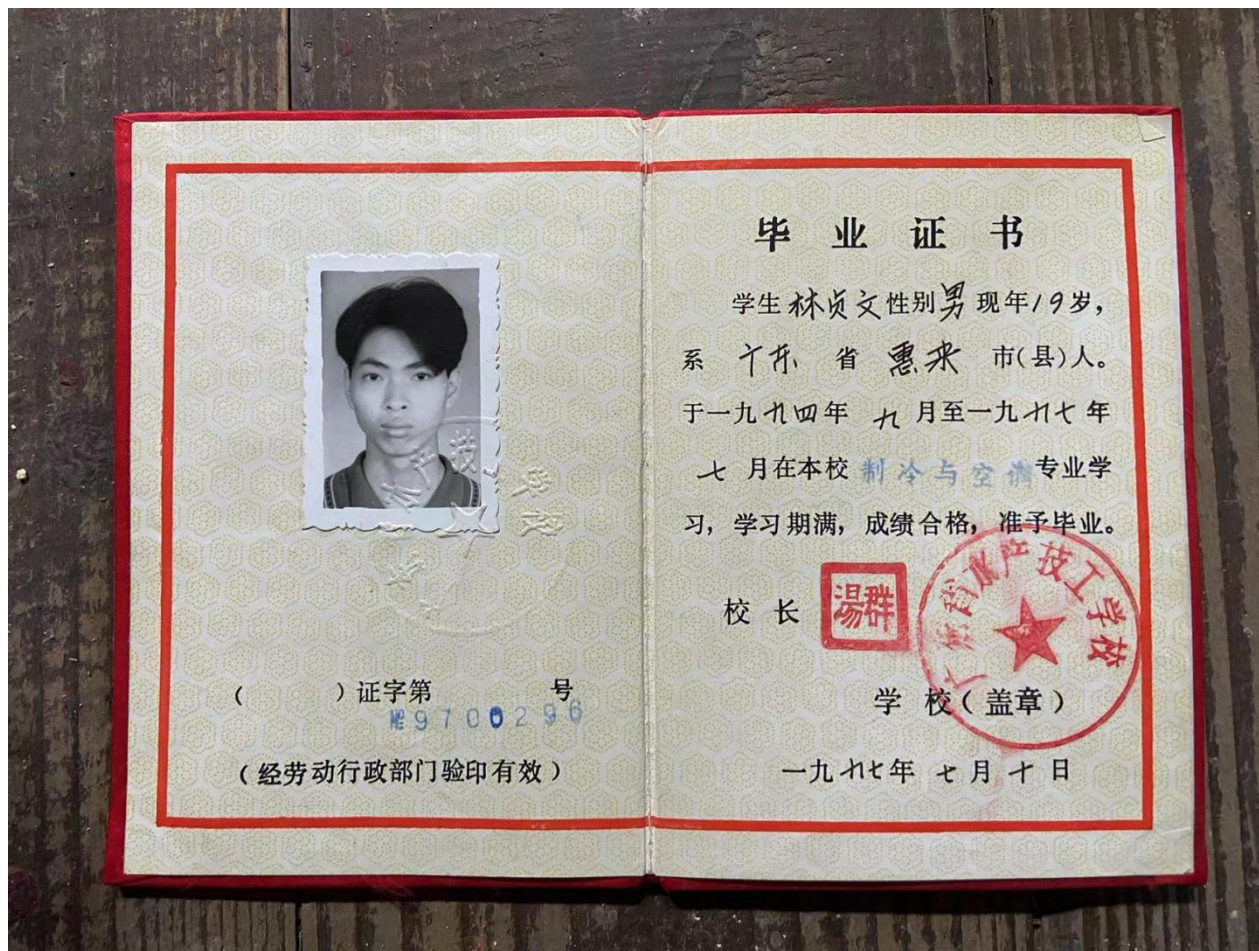 （ ）证字第 号
9700296
（经劳动行政部门验印有效）
毕业证书
学生林贞文性别男现年19岁，
系 广东 省 惠来 市(县)人。
于一九九四年 九 月至一九九七年
七 月在本校 制冷与空调 专业学
习，学习期满，成绩合格，准予毕业。
校长 湯群
广东省水产技工学校
学 校（盖章）
一九九七年 七月十日